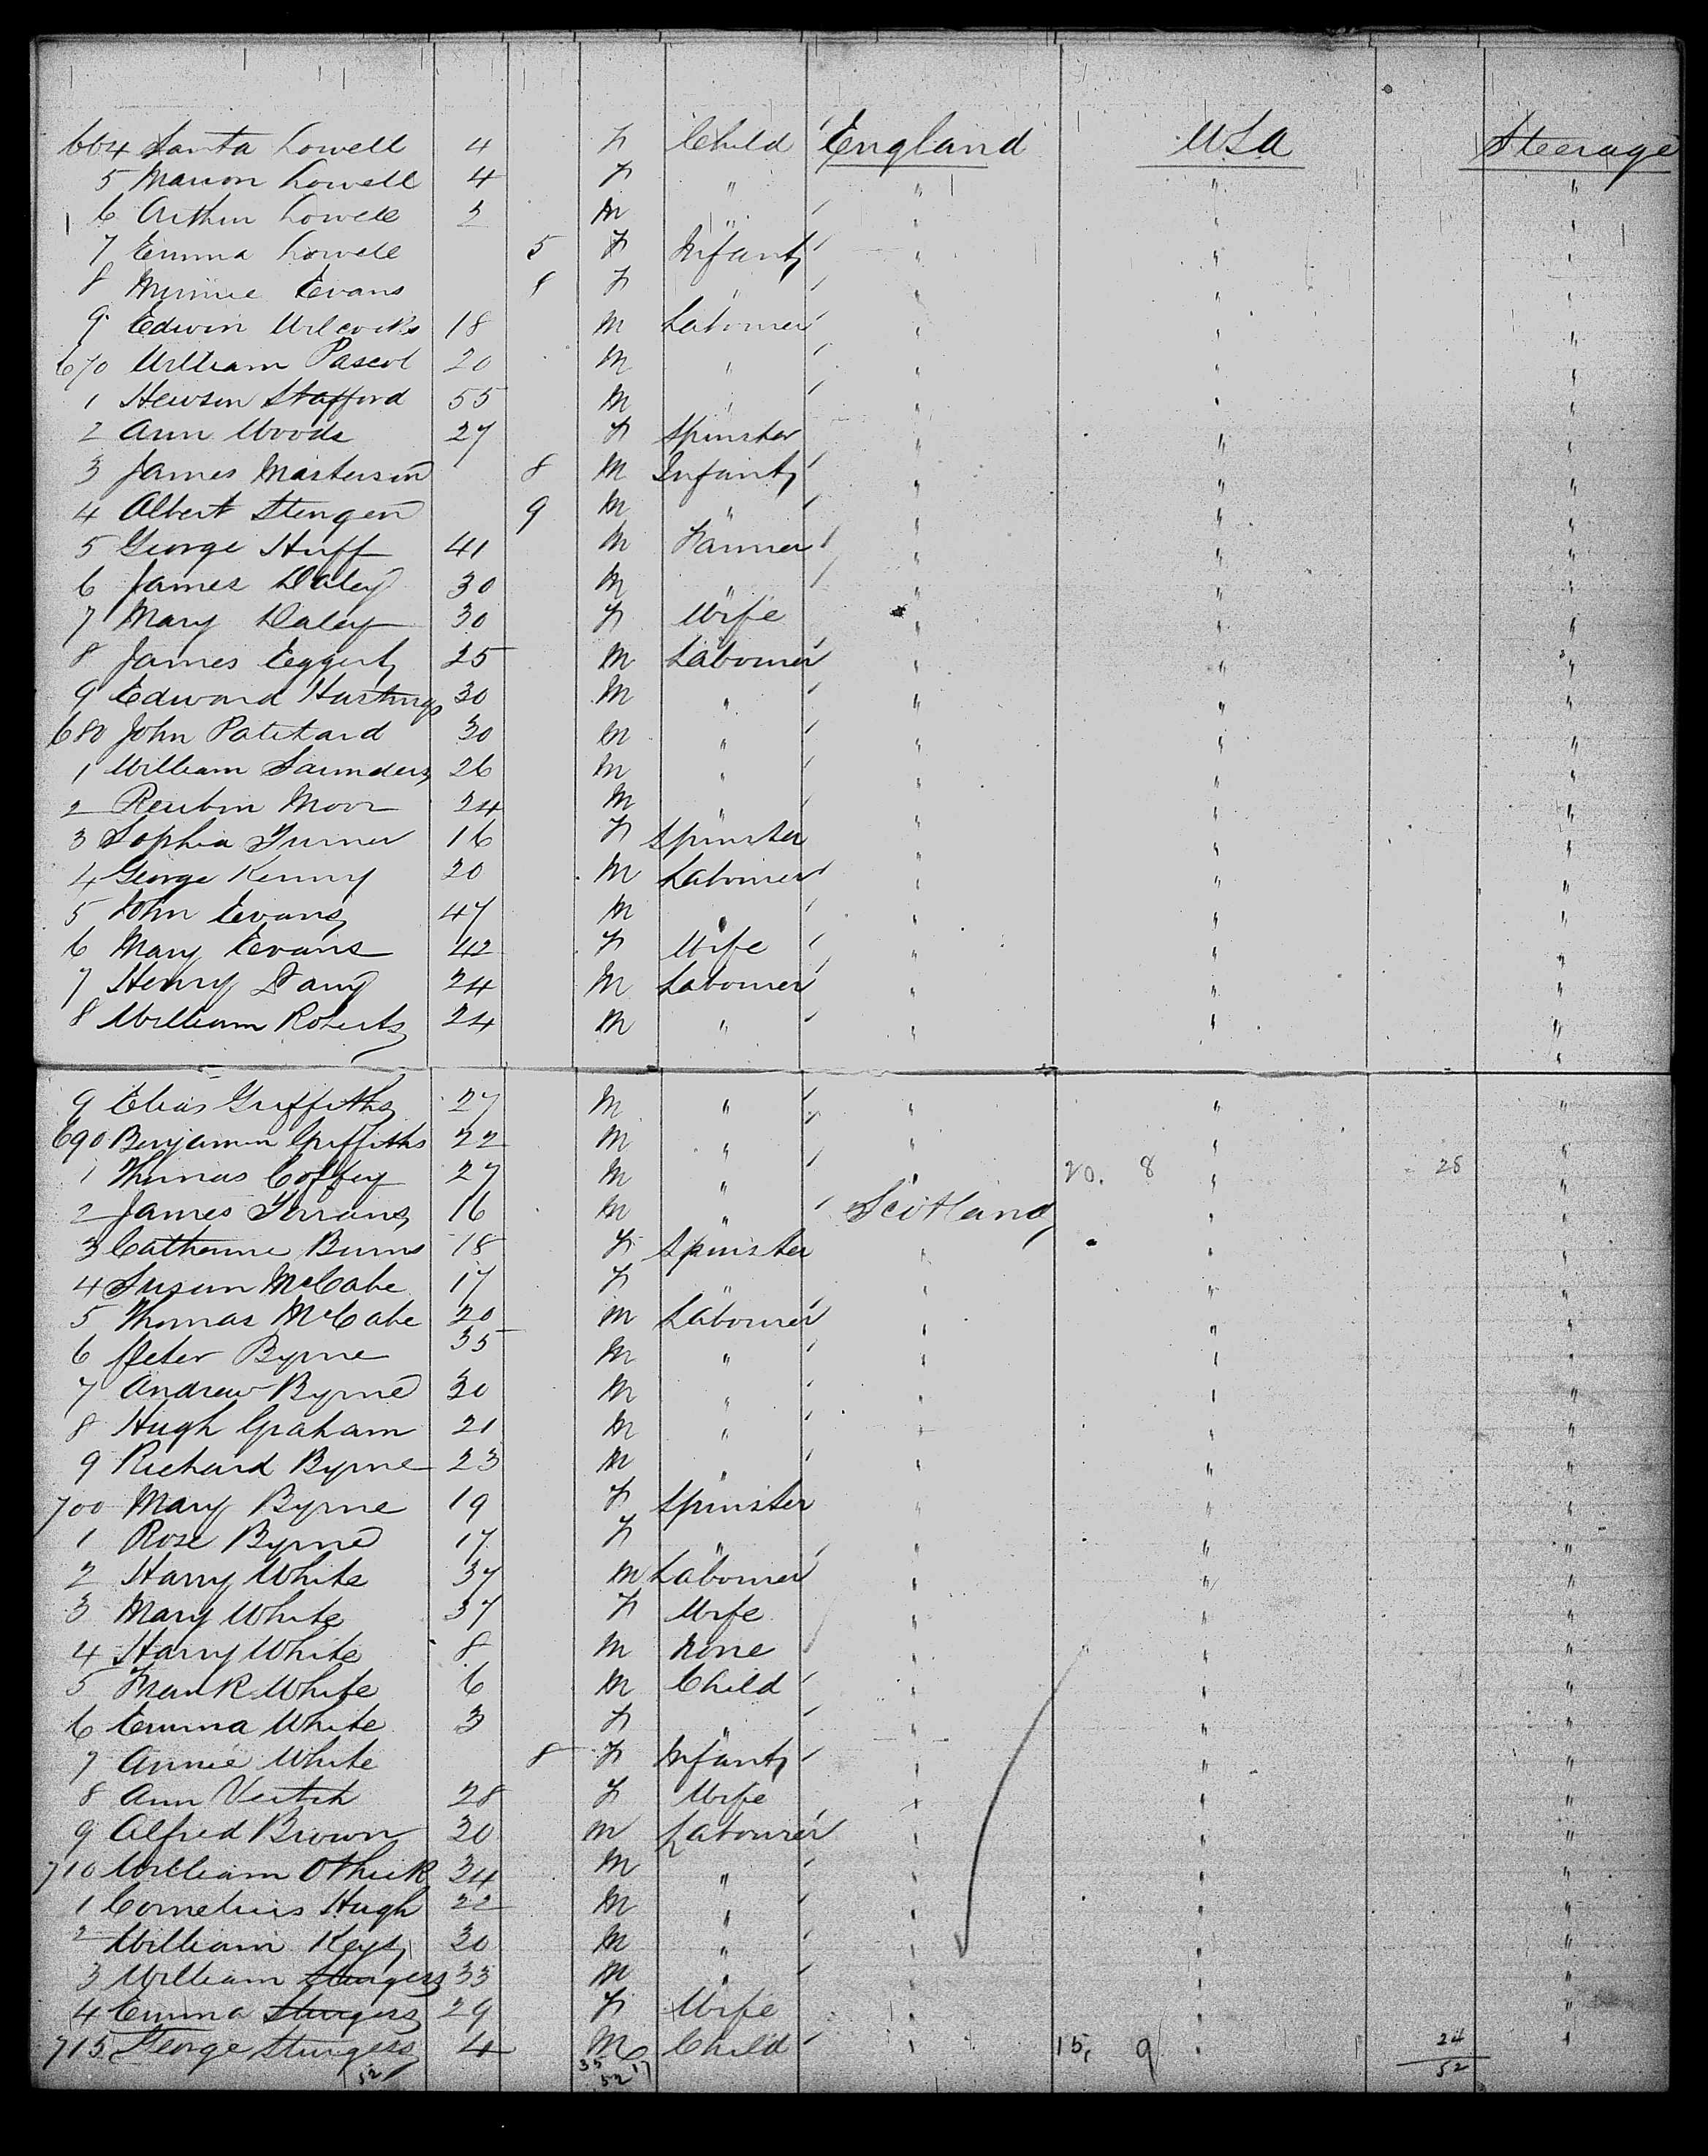 664 Santa Lowell 4 F Child England USA Steerage
5 Marion Lowell 4 F " " " "
6 Arthur Lowell 2 M " " " "
7 Emma Lowell 5 F Infant " " "
8 Minnie Evans 8 F " " " "
9 Edwin Wilcocks 18 M Labourer " " "
670 William Pascol 20 M " " " "
1 Hewson Stafford 55 M " " " "
2 Ann Woods 27 F Spinster " " "
3 James Masterson 8 M Infant " " "
4 Albert Stengen 9 M " " " "
5 George Huff 41 M Farmer " " "
6 James Daley 30 M " " " "
7 Mary Daley 30 F Wife " " "
8 James Eggert 25 M Labourer " " "
9 Edward Hastings 30 M " " " "
680 John Patchard 30 M " " " "
1 William Saunders 26 M " " " "
2 Reubin Moor 24 M " " " "
3 Sophia Turner 16 F Spinster " " "
4 George Kenny 20 M Labourer " " "
5 John Evans 47 M " " " "
6 Mary Evans 42 F Wife " " "
7 Henry 24 M Labourer " " "
8 William Roberts 24 M " " " "
9 Elias Griffiths 27 M " " " "
690 Benjamin Griffiths 22 M " " " "
1 Thomas Coffey 27 M " " 20. 8 " 28 "
2 James 16 M " Scotland " "
3 Catherine Burns 18 F Spinster " " "
4 Susan McCabe 17 F " " " "
5 Thomas McCabe 20 M Labourer " " "
6 Peter Byrne 35 M " " " "
7 Andrew Byrne 30 M " " " "
8 Hugh Graham 21 M " " " "
9 Richard Byrne 23 M " " " "
700 Mary Byrne 19 F Spinster " " "
1 Rose Byrne 17 F " " " "
2 Harry White 37 M Labourer " " "
3 Mary White 37 F Wife " " "
4 Harry White 8 M None " " "
5 Frank White 6 M Child " " "
6 Emma White 3 F " " " "
7 Annie White 8 F Infant " " "
8 Ann Veitch 28 F Wife " " "
9 Alfred Brown 30 M Labourer " " "
710 William 24 M " " " "
1 Cornelius Hugh 22 M " " " "
2 William Keys 30 M " " " "
3 William Sturgess 33 M " " " "
4 Emma Sturgess 29 F Wife " " "
715 George Sturgess 4 M Child " 15, 9 " 24 "
52 35 17 52 52